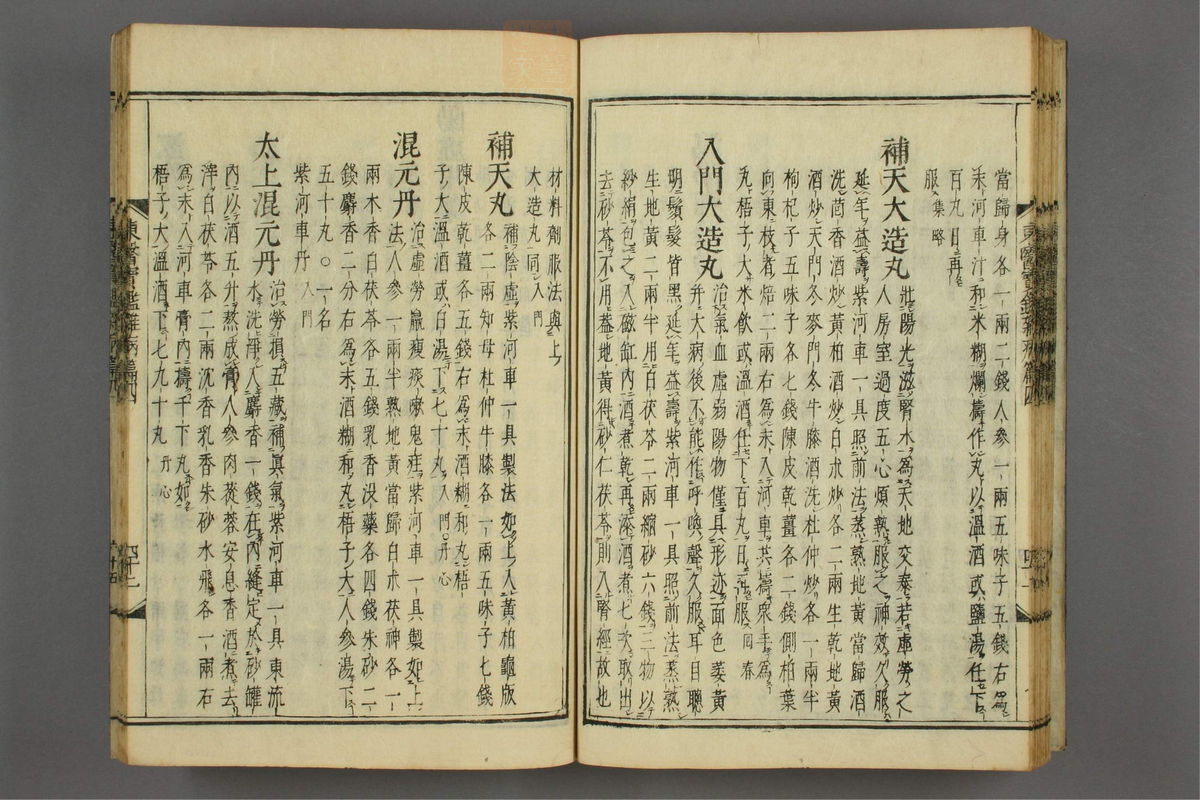 當歸身各一兩二錢人參一兩五味子五錢右爲
末河車汁和米糊爛擣作丸以溫酒或鹽湯任下
百丸日再
服集略
補天大造丸 壯陽光滋腎水爲天地交泰若虛勞之
人房室過度五心煩熱服之神效久服
延年益壽紫河車一具照前法蒸熟地黃當歸酒
洗茴香酒炒黃柏酒炒白朮炒各二兩生乾地黃
酒炒天門冬麥門冬牛膝酒洗杜仲炒各一兩半
枸杞子五味子各七錢陳皮乾薑各二錢側柏葉
向東枝者焙二兩右爲末入河車共擣衆手爲
丸梧子大米飮或溫酒任下百丸日二服 回春
入門大造丸 治氣血虛弱陽物僅具形迹面色萎黃
幷大病後不能作呼喚聲久服耳目聰
明鬚髮皆黑延年益壽紫河車一具照前法蒸熟
生地黃二兩半用白茯苓二兩縮砂六錢三物以
紗絹包之入磁缸內酒煮乾再添酒煮七次取出
去砂苓不用蓋地黃得砂仁茯苓則入腎經故也
材料劑服法與上
大造丸同入門
補天丸 補陰虛紫河車一具製法如上入黃柏龜版
各二兩知母杜仲牛膝各一兩五味子七錢
陳皮乾薑各五錢右爲末酒糊和丸梧
子大溫酒或白湯下七十丸入門○丹心
混元丹 治虛勞羸瘦痰嗽鬼疰紫河車一具製如上
法人參一兩半熟地黃當歸白朮茯神各一
兩木香白茯苓各五錢乳香沒藥各四錢朱砂二
錢麝香二分右爲末酒糊和丸梧子大人參湯下
五十丸○一名
紫河車丹入門
太上混元丹 治勞損五藏補眞氣紫河車一具東流
水洗淨入麝香一錢在內縫定於砂罐
內以酒五升熬成膏人參肉蓯蓉安息香酒煮去
滓白茯苓各二兩沉香乳香朱砂水飛各一兩右
爲末入河車膏內擣千下丸如
梧子大溫酒下七九十丸 丹心